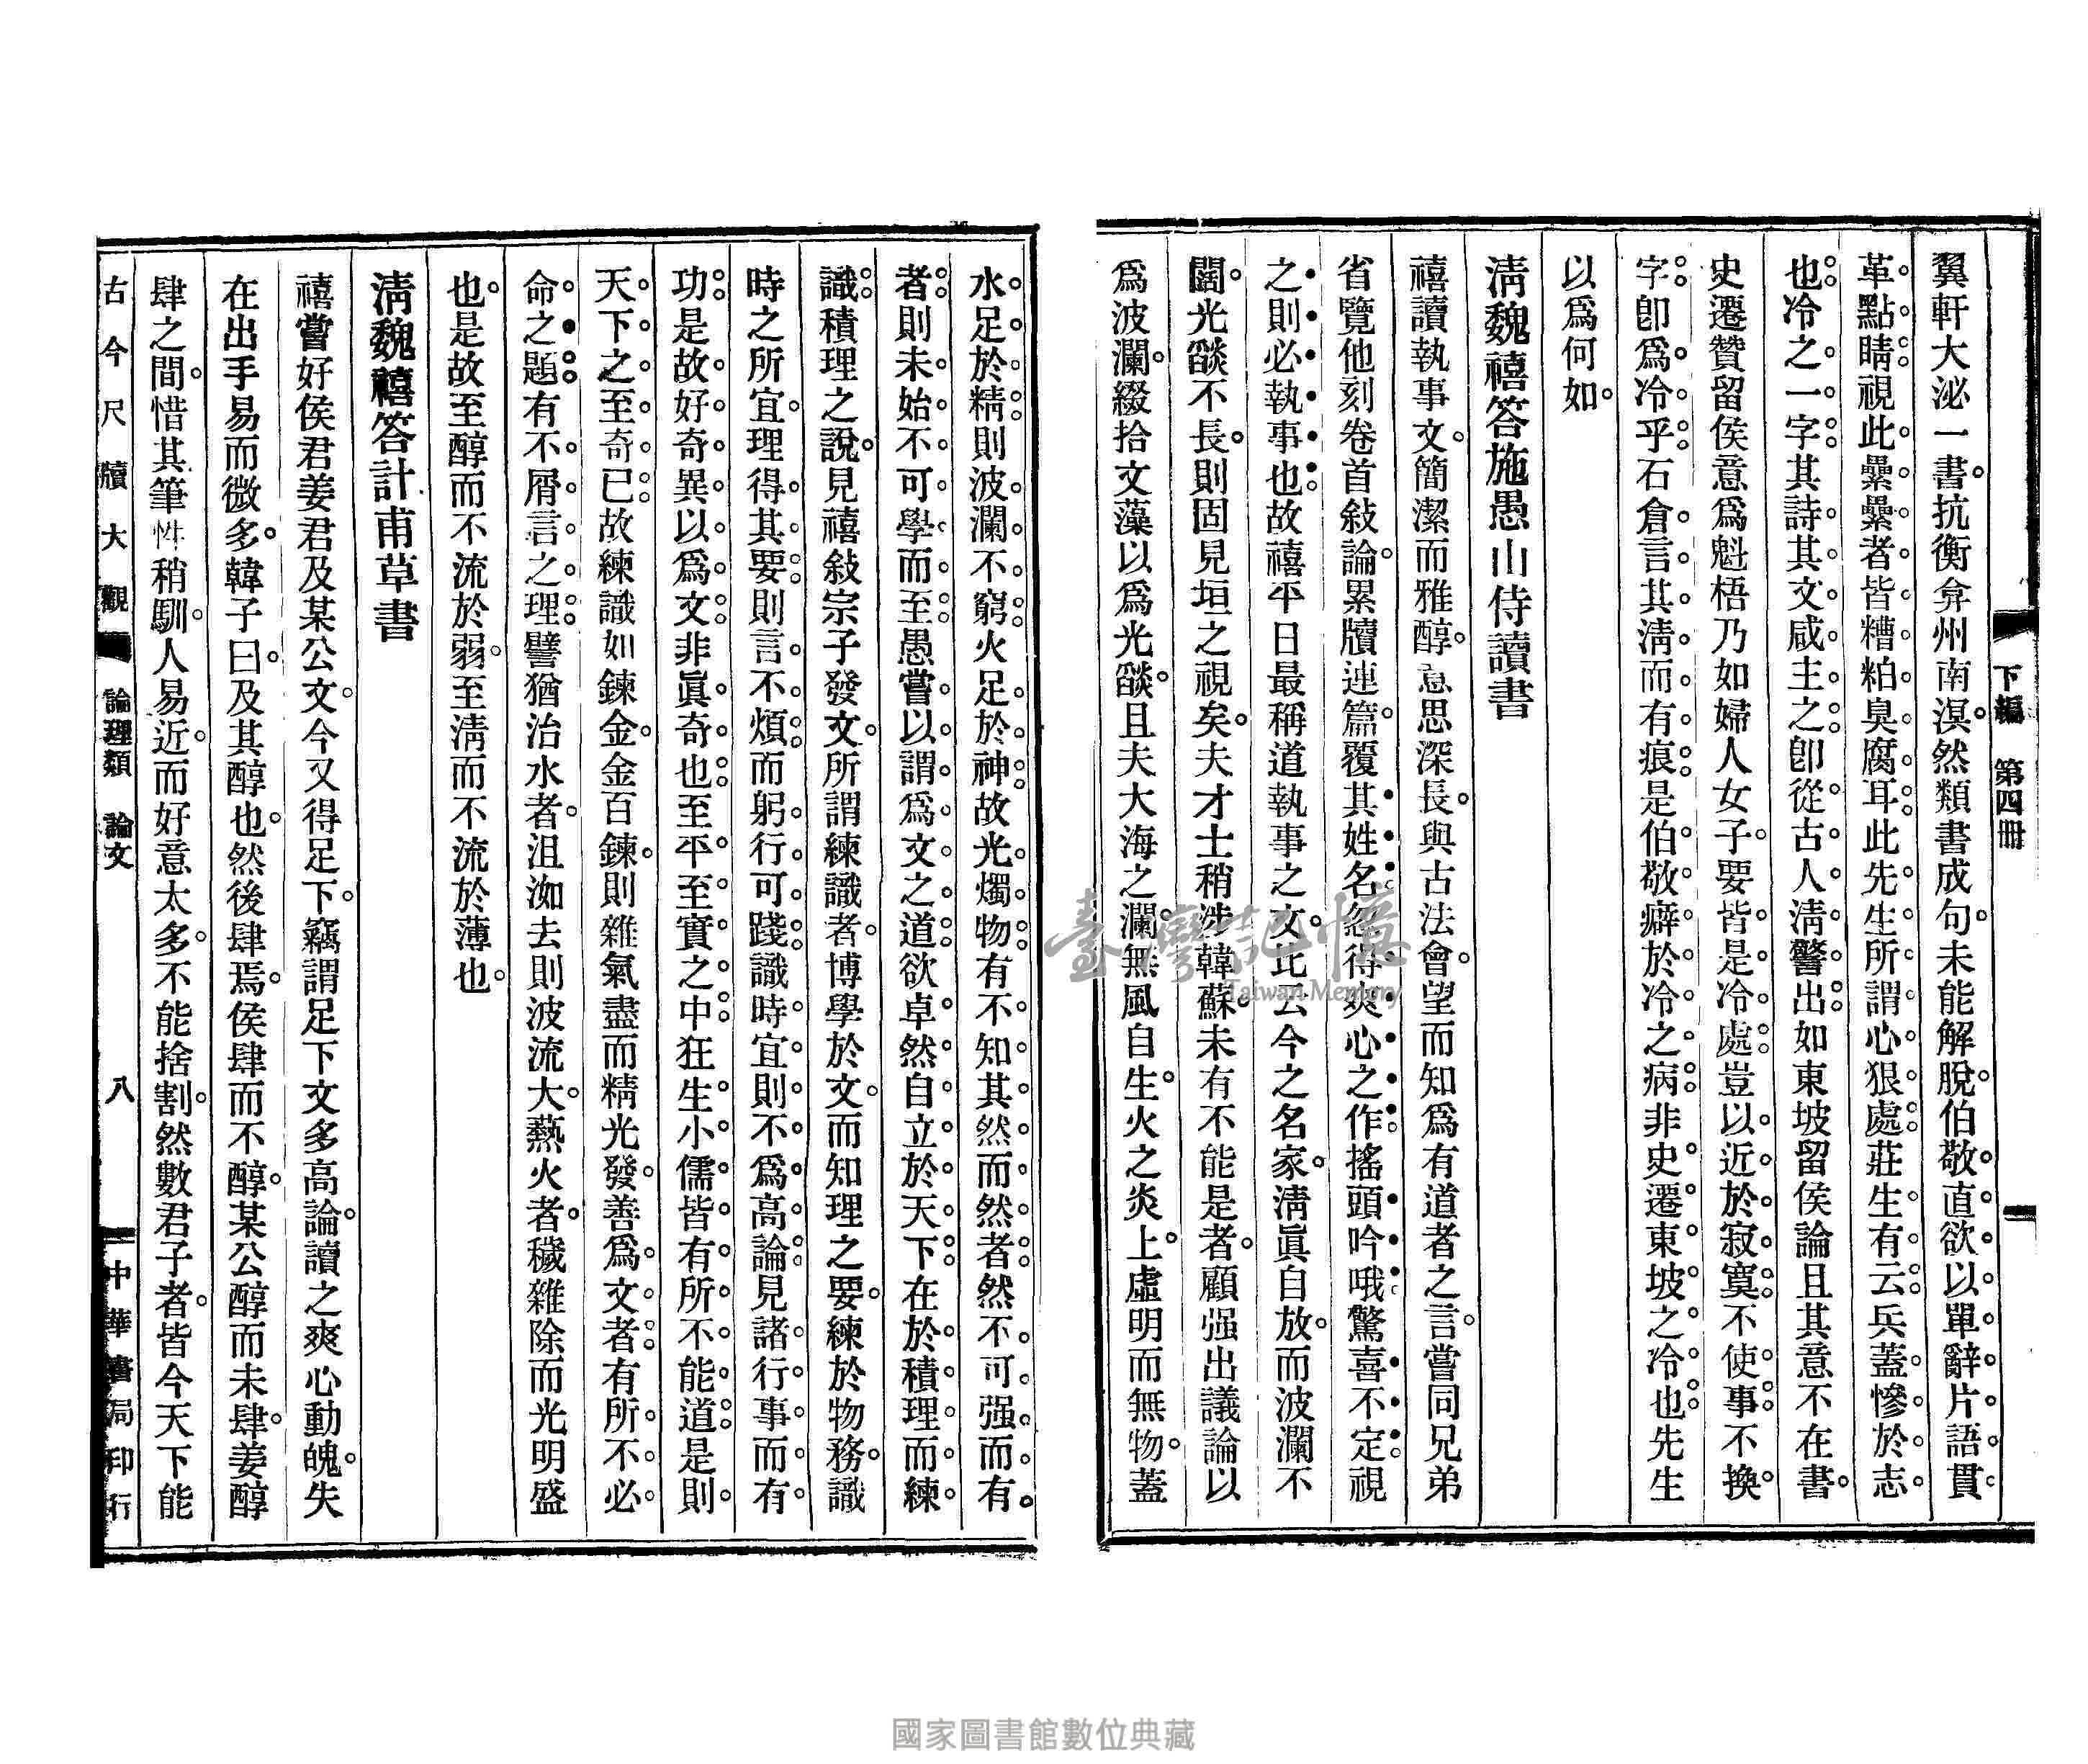 下編　第四冊
翼軒大泌一書抗衡弇州南溟然類書成句未能解脫伯敬直欲以單辭片語貫
革點睛視此纍纍者皆糟粕臭腐耳此先生所謂心狠處莊生有云兵蓋慘於志
也冷之一字其詩其文咸主之卽從古人淸警出如東坡留侯論且其意不在書
史遷贊留侯意爲魁梧乃如婦人女子要皆是冷處豈以近於寂寞不使事不換
字卽爲冷乎石倉言其淸而有痕是伯敬癖於冷之病非史遷東坡之冷也先生
以爲何如
淸魏禧答施愚山侍讀書
禧讀執事文簡潔而雅醇意思深長與古法會望而知爲有道者之言嘗同兄弟
省覽他刻卷首敍論累牘連篇覆其姓名忽得爽心之作搖頭吟哦驚喜不定視
之則必執事也故禧平日最稱道執事之文比云今之名家淸眞自放而波瀾不
闊光燄不長則固見垣之視矣夫才士稍涉韓蘇未有不能是者顧强出議論以
爲波瀾綴拾文藻以爲光燄且夫大海之瀾無風自生火之炎上虛明而無物蓋
水足於精則波瀾不窮火足於神故光燭物有不知其然而然者然不可强而有
者則未始不可學而至愚嘗以謂爲文之道欲卓然自立於天下在於積理而練
識積理之說見禧敍宗子發文所謂練識者博學於文而知理之要練於物務識
時之所宜理得其要則言不煩而躬行可踐識時宜則不爲高論見諸行事而有
功是故好奇異以爲文非眞奇也至平至實之中狂生小儒皆有所不能道是則
天下之至奇已故練識如鍊金金百鍊則雜氣盡而精光發善爲文者有所不必
命之題有不屑言之理譬猶治水者沮洳去則波流大爇火者穢雜除而光明盛
也是故至醇而不流於弱至淸而不流於薄也
淸魏禧答計甫草書
禧嘗好侯君姜君及某公文今又得足下竊謂足下文多高論讀之爽心動魄失
在出手易而微多韓子曰及其醇也然後肆焉侯肆而不醇某公醇而未肆姜醇
肆之間惜其筆性稍馴人易近而好意太多不能捨割然數君子者皆今天下能
古今尺牘大觀　論理類　論文　八　中華書局印行
臺灣記憶
Taiwan Memory
國家圖書館數位典藏